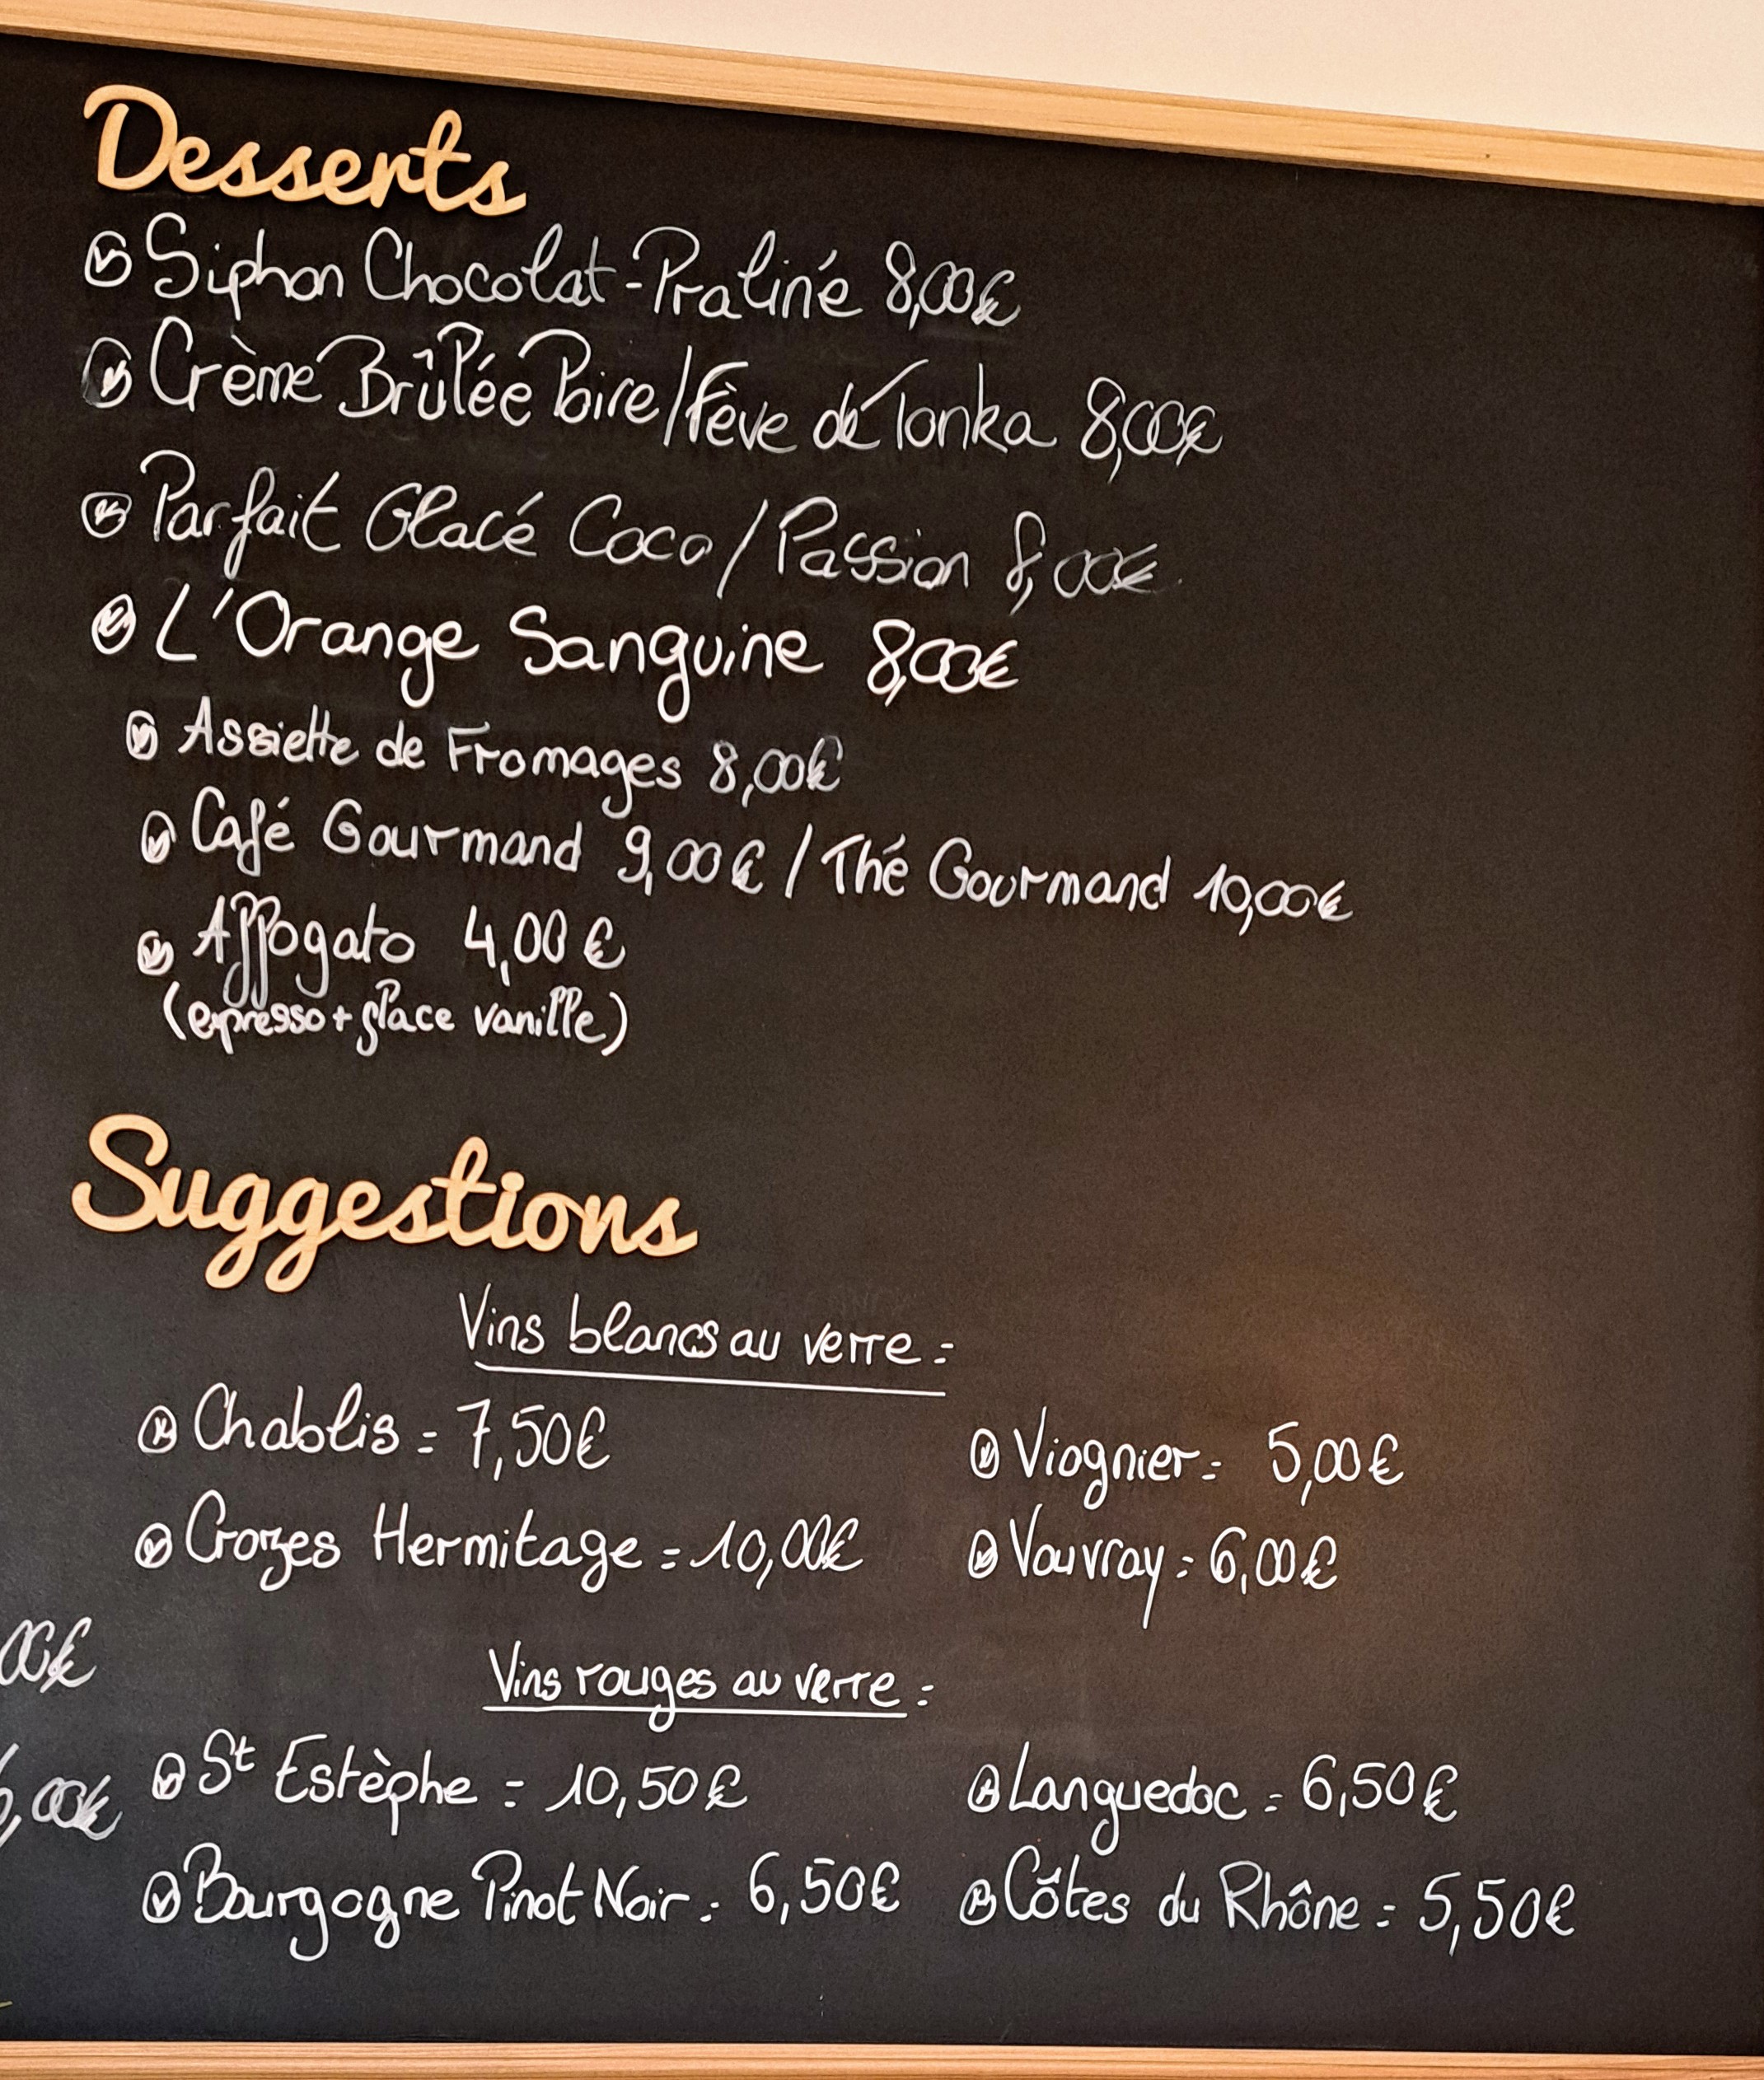 Desserts
Siphon Chocolat-Praliné 8,00€
Crème Brûlée Poire/Fève de Tonka 8,00€
Parfait Glacé Coco/Passion 8,00€
L'Orange Sanguine 8,00€
Assiette de Fromages 8,00€
Café Gourmand 9,00€ / Thé Gourmand 10,00€
Affogato 4,00€
(expresso + glace vanille)
Suggestions
Vins blancs au verre :
Chablis : 7,50€
Viognier : 5,00€
Crozes Hermitage : 10,00€
Vouvray : 6,00€
00€
Vins rouges au verre :
St Estèphe : 10,50€
Languedoc : 6,50€
,00€
Bourgogne Pinot Noir : 6,50€
Côtes du Rhône : 5,50€